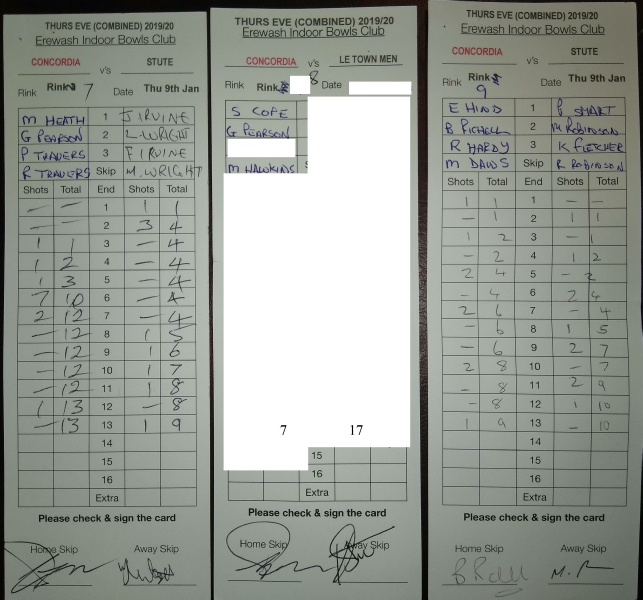 THURS EVE (COMBINED) 2019/20
Erewash Indoor Bowls Club
CONCORDIA v's STUTE
Rink Rink 7 Date Thu 9th Jan
M HEATH 1 J IRVINE
G PEARSON 2 L. WRIGHT
P TRAVERS 3 F IRVINE
R TRAVERS Skip M. WRIGHT
Shots Total End Shots Total
— — 1 1 1
— — 2 3 4
1 1 3 — 4
1 2 4 — 4
1 3 5 — 4
7 10 6 — 4
2 12 7 — 4
— 12 8 1 5
— 12 9 1 6
— 12 10 1 7
— 12 11 1 8
1 13 12 — 8
— 13 13 1 9
14
15
16
Extra
Please check & sign the card
Home Skip Away Skip
THURS EVE (COMBINED) 2019/20
Erewash Indoor Bowls Club
CONCORDIA v's LE TOWN MEN
Rink Rink 8 Date
S COPE
G PEARSON
M HAWKINS
7 17
15
16
Extra
Please check & sign the card
Home Skip Away Skip
THURS EVE (COMBINED) 2019/20
Erewash Indoor Bowls Club
CONCORDIA v's STUTE
Rink Rink 9 Date Thu 9th Jan
E HIND 1 P SMART
B PICHELL 2 M ROBINSON
R HARDY 3 K FLETCHER
M DAWS Skip R ROBINSON
Shots Total End Shots Total
1 1 1 — —
— 1 2 1 1
1 2 3 — 1
— 2 4 1 2
2 4 5 — 2
— 4 6 2 4
2 6 7 — 4
— 6 8 1 5
— 6 9 2 7
2 8 10 — 7
— 8 11 2 9
— 8 12 1 10
1 9 13 — 10
14
15
16
Extra
Please check & sign the card
Home Skip Away Skip